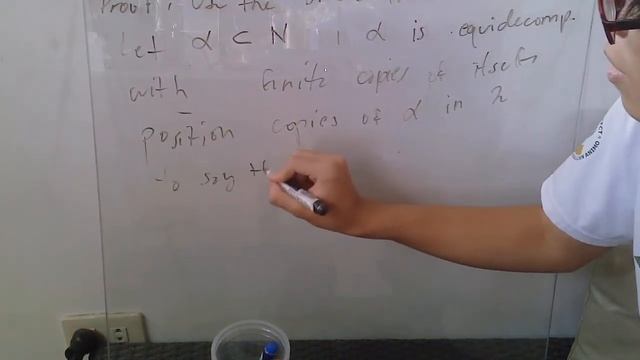 Proof: Use the
Let α ⊂ N, α is equidecomp.
with finite copies of itself
position copies of α in λ
to say th